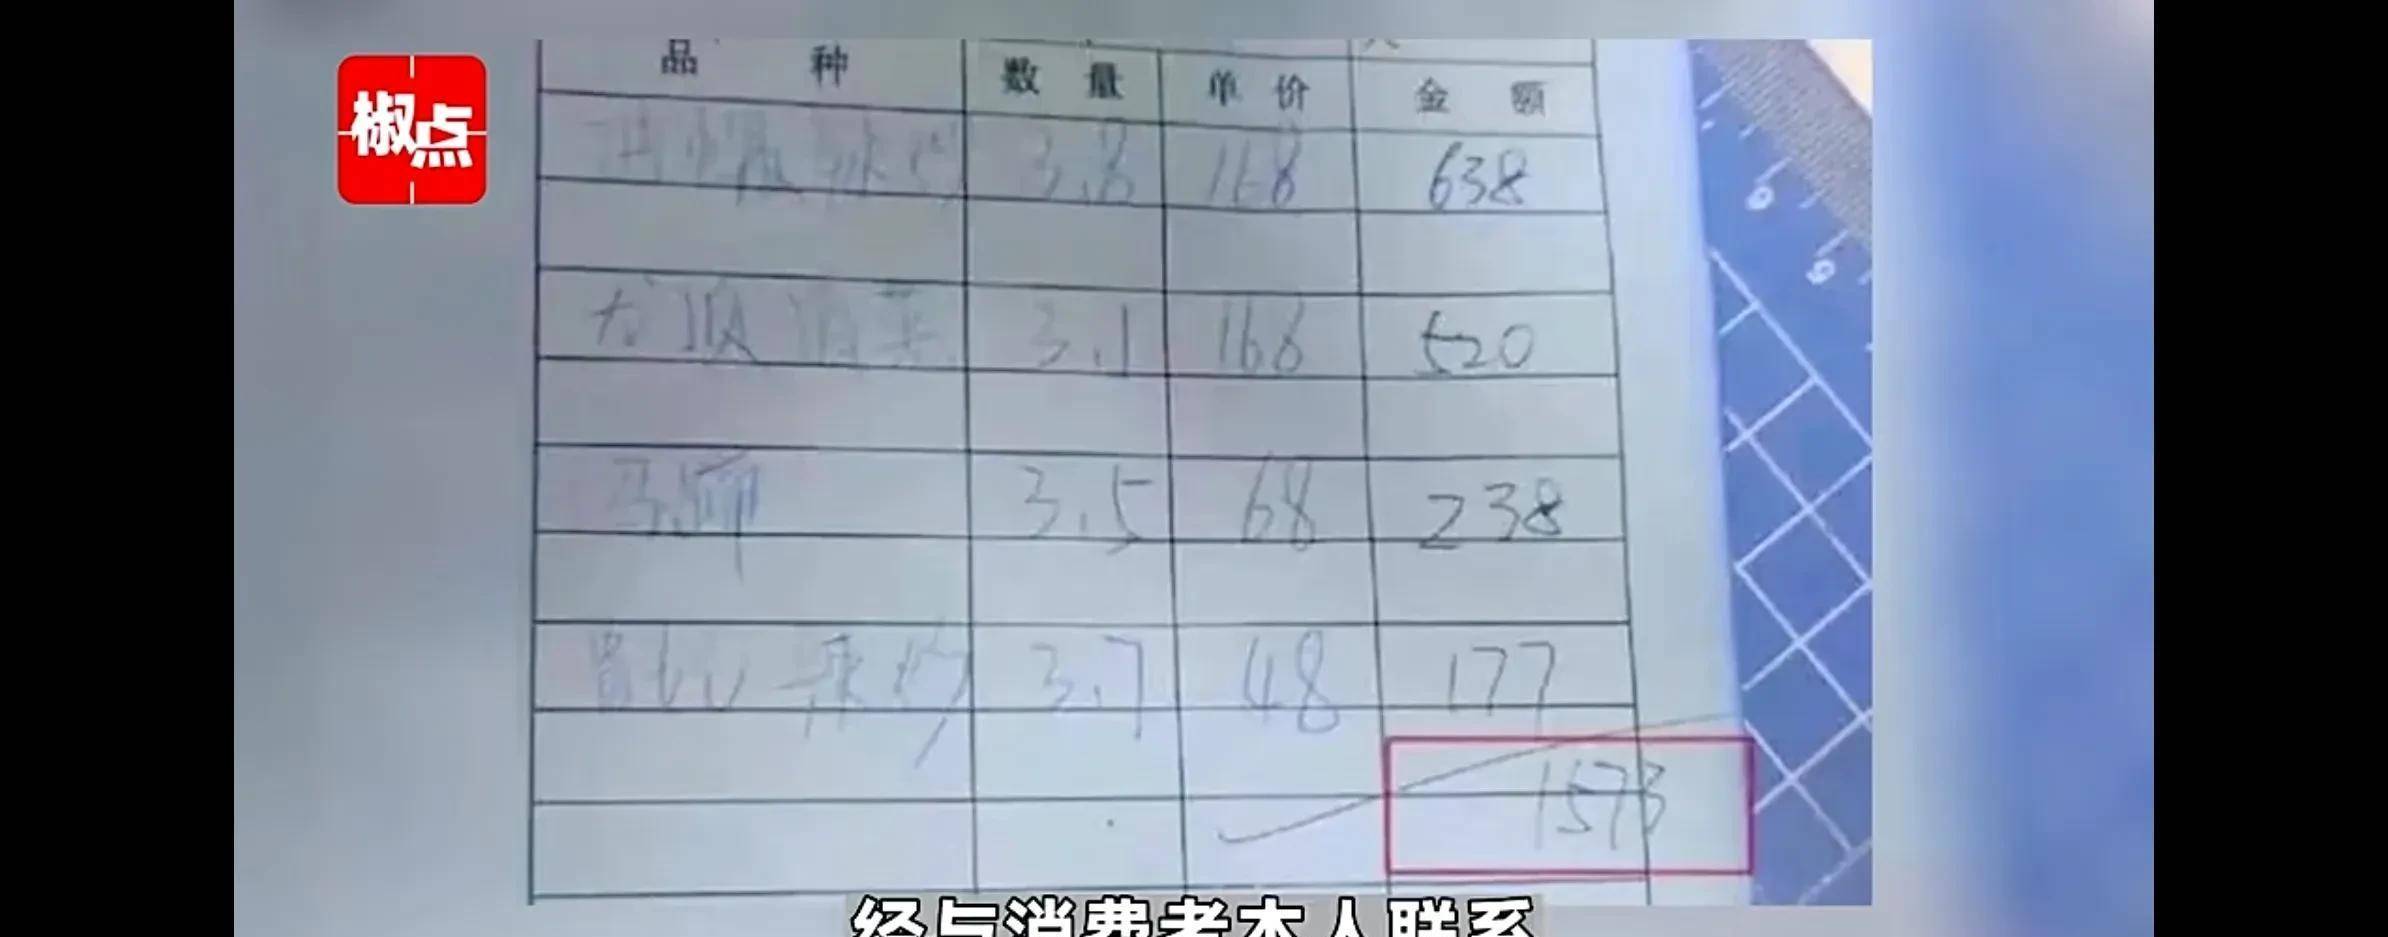 椒点
品 种 数 量 单 价 金 额
3.8 168 638
3.1 168 520
3.5 68 238
3.7 48 177
1573
经与消费者本人联系